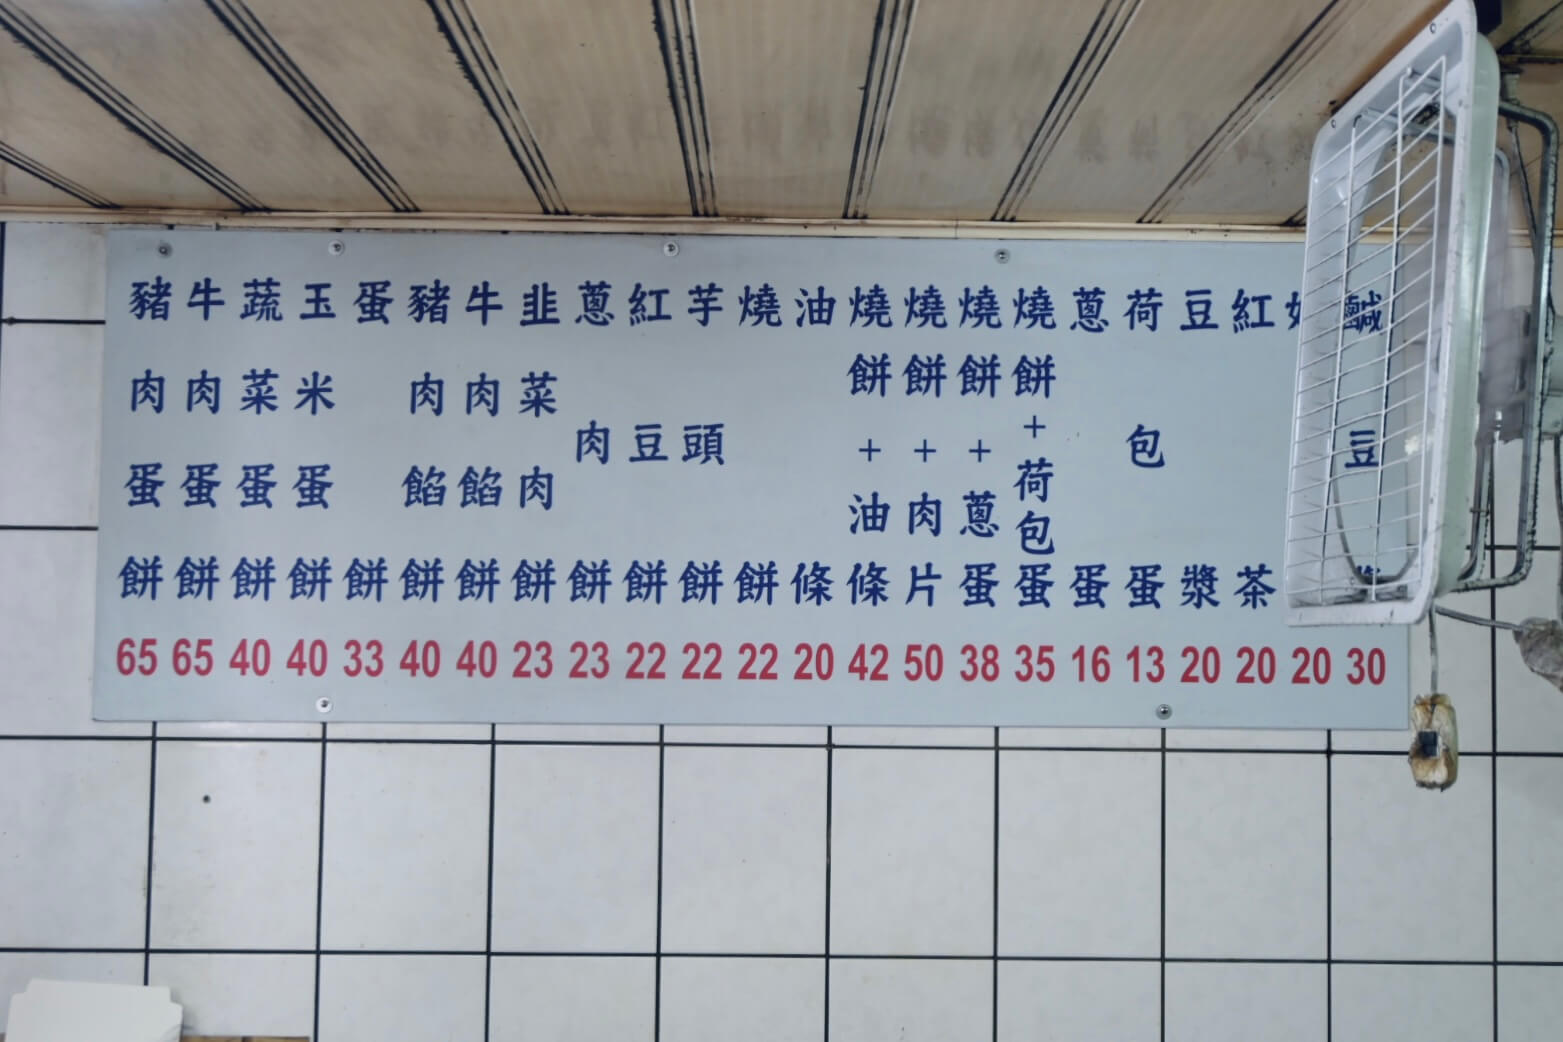 豬肉蛋餅 65
牛肉蛋餅 65
蔬菜蛋餅 40
玉米蛋餅 40
蛋餅 33
豬肉餡餅 40
牛肉餡餅 40
韭菜肉餅 23
蔥肉餅 23
紅豆餅 22
芋頭餅 22
燒餅 22
油條 20
燒餅+油條 42
燒餅+肉片 50
燒餅+蔥蛋 38
燒餅+荷包蛋 35
蔥蛋 16
荷包蛋 13
豆漿 20
紅茶 20
20
鹹豆漿 30